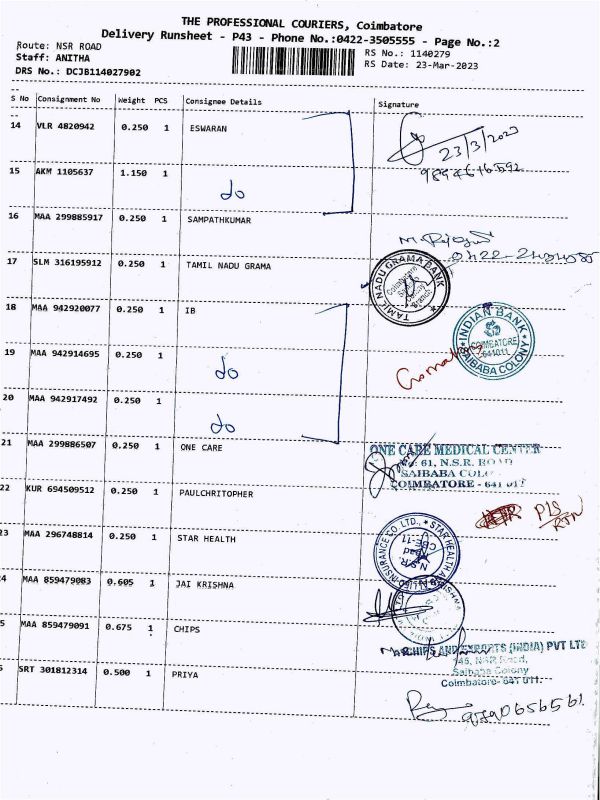 THE PROFESSIONAL COURIERS, Coimbatore
Delivery Runsheet - P43 - Phone No.:0422-3505555 - Page No.:2
Route: NSR ROAD
RS No.: 1140279
Staff: ANITHA
RS Date: 23-Mar-2023
DRS No.: DCJB114027902
S No Consignment No Weight PCS Consignee Details Signature
14 VLR 4820942 0.250 1 ESWARAN
23/3/2023
15 AKM 1105637 1.150 1
do
16 MAA 299885917 0.250 1 SAMPATHKUMAR
17 SLM 316195912 0.250 1 TAMIL NADU GRAMA
TAMIL NADU GRAMA BANK
Coimbatore
Branch
18 MAA 942920077 0.250 1 IB
INDIAN BANK
COIMBATORE
641011
SAIBABA COLONY
19 MAA 942914695 0.250 1
do
20 MAA 942917492 0.250 1
do
21 MAA 299886507 0.250 1 ONE CARE
ONE CARE MEDICAL CENTER
No: 61, N.S.R. ROAD
SAIBABA COLO
COIMBATORE - 641 011
22 KUR 694509512 0.250 1 PAULCHRITOPHER
Pls
RTN
23 MAA 296748814 0.250 1 STAR HEALTH
STAR HEALTH & ALLIED INSURANCE CO. LTD.,
N.S.R. Road
CBE-11
4 MAA 859479083 0.605 1 JAI KRISHNA
5 MAA 859479091 0.675 1 CHIPS
CHIPS AND EXPORTS (INDIA) PVT LTD
145, NSR Road,
Saibaba Colony
Coimbatore- 641 011.
SRT 301812314 0.500 1 PRIYA
9790656561